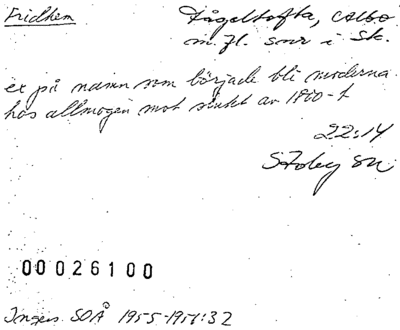 Fridhem
Fågeltofta, Albo
m.fl. snr i Sk.
ex på namn som började bli moderna
hos allmogen mot slutet av 1800-t
22:14
Sköldby SN
00026100
Ingers SOÅ 1955-1957:32